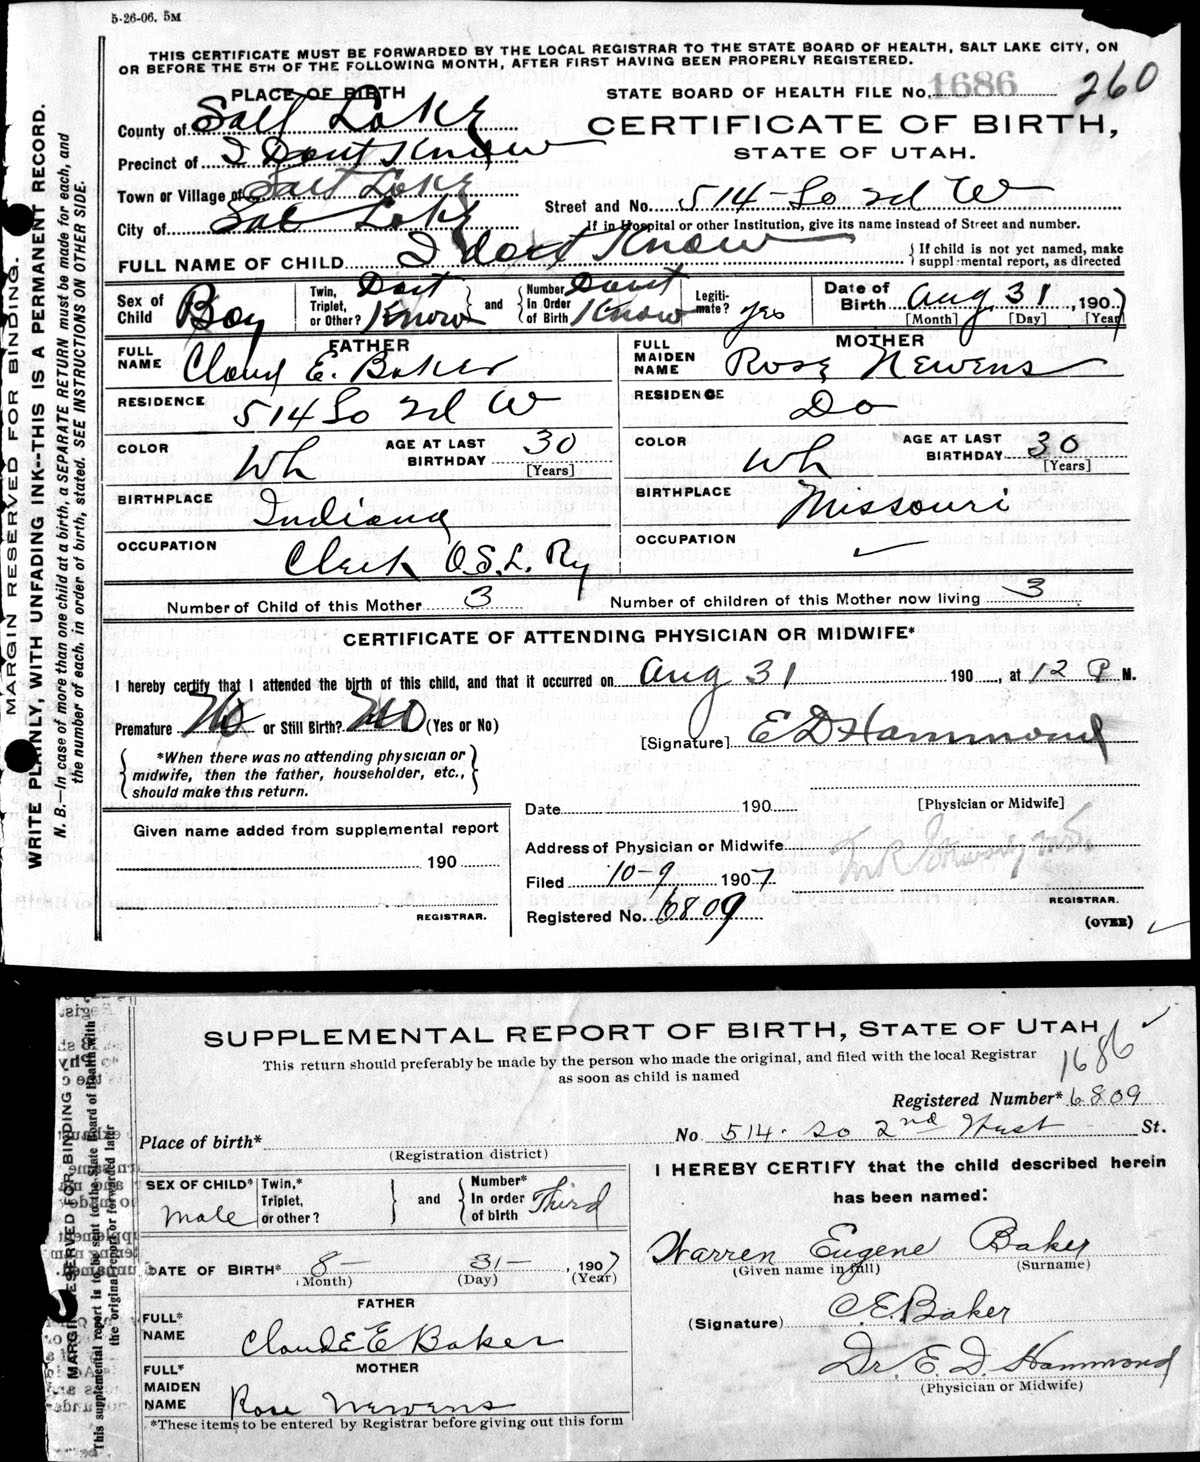 5-26-06. 5M
THIS CERTIFICATE MUST BE FORWARDED BY THE LOCAL REGISTRAR TO THE STATE BOARD OF HEALTH, SALT LAKE CITY, ON
OR BEFORE THE 5TH OF THE FOLLOWING MONTH, AFTER FIRST HAVING BEEN PROPERLY REGISTERED.
MARGIN RESERVED FOR BINDING.
WRITE PLAINLY, WITH UNFADING INK--THIS IS A PERMANENT RECORD.
N. B.—In case of more than one child at a birth, a SEPARATE RETURN must be made for each, and
the number of each, in order of birth, stated. SEE INSTRUCTIONS ON OTHER SIDE.
PLACE OF BIRTH
STATE BOARD OF HEALTH FILE No. 1686 260
County of Salt Lake
CERTIFICATE OF BIRTH,
STATE OF UTAH.
Precinct of I Dont Know
Town or Village of Salt Lake
Street and No. 514 So 2d W
City of Sal Lake
If in Hospital or other Institution, give its name instead of Street and number.
FULL NAME OF CHILD I dont Know
{ If child is not yet named, make
supplemental report, as directed
Sex of Child Boy
Twin, Triplet, or Other? Dont Know } and { Number, In Order of Birth Dont Know
Legiti-mate? yes
Date of Birth Aug 31, 1907
[Month] [Day] [Year]
FATHER
MOTHER
FULL NAME Claud E. Baker
FULL MAIDEN NAME Rose Newens
RESIDENCE 514 So 2d W
RESIDENCE Do
COLOR Wh AGE AT LAST BIRTHDAY 30 [Years]
COLOR Wh AGE AT LAST BIRTHDAY 30 [Years]
BIRTHPLACE Indiana
BIRTHPLACE Missouri
OCCUPATION Clerk O.S.L. Ry
OCCUPATION ✓
Number of Child of this Mother 3 Number of children of this Mother now living 3
CERTIFICATE OF ATTENDING PHYSICIAN OR MIDWIFE*
I hereby certify that I attended the birth of this child, and that it occurred on Aug 31 190, at 12 P M.
Premature No or Still Birth? No (Yes or No)
[Signature] E D Hammond
{ *When there was no attending physician or
midwife, then the father, householder, etc.,
should make this return. }
Date 190 [Physician or Midwife]
Given name added from supplemental report
190
REGISTRAR.
Address of Physician or Midwife
Filed 10-9 1907
REGISTRAR.
Registered No. 6809
(OVER) ✓
SUPPLEMENTAL REPORT OF BIRTH, STATE OF UTAH ✓
This return should preferably be made by the person who made the original, and filed with the local Registrar
as soon as child is named
1686
MARGIN RESERVED FOR BINDING
This supplemental report is to be sent to the State Board of Health with
the original report or forwarded later
Registered Number* 6809
Place of birth* No 514 So 2nd West St.
(Registration district)
SEX OF CHILD* Male
Twin,* Triplet, or other? } and { Number* In order of birth Third
I HEREBY CERTIFY that the child described herein
has been named:
DATE OF BIRTH* 8 - 31 -, 1907
(Month) (Day) (Year)
Warren Eugene Baker
(Given name in full) (Surname)
FATHER
FULL* NAME Claude E Baker
(Signature) C. E. Baker
MOTHER
FULL* MAIDEN NAME Rose Newens
Dr. E. D. Hammond
(Physician or Midwife)
*These items to be entered by Registrar before giving out this form